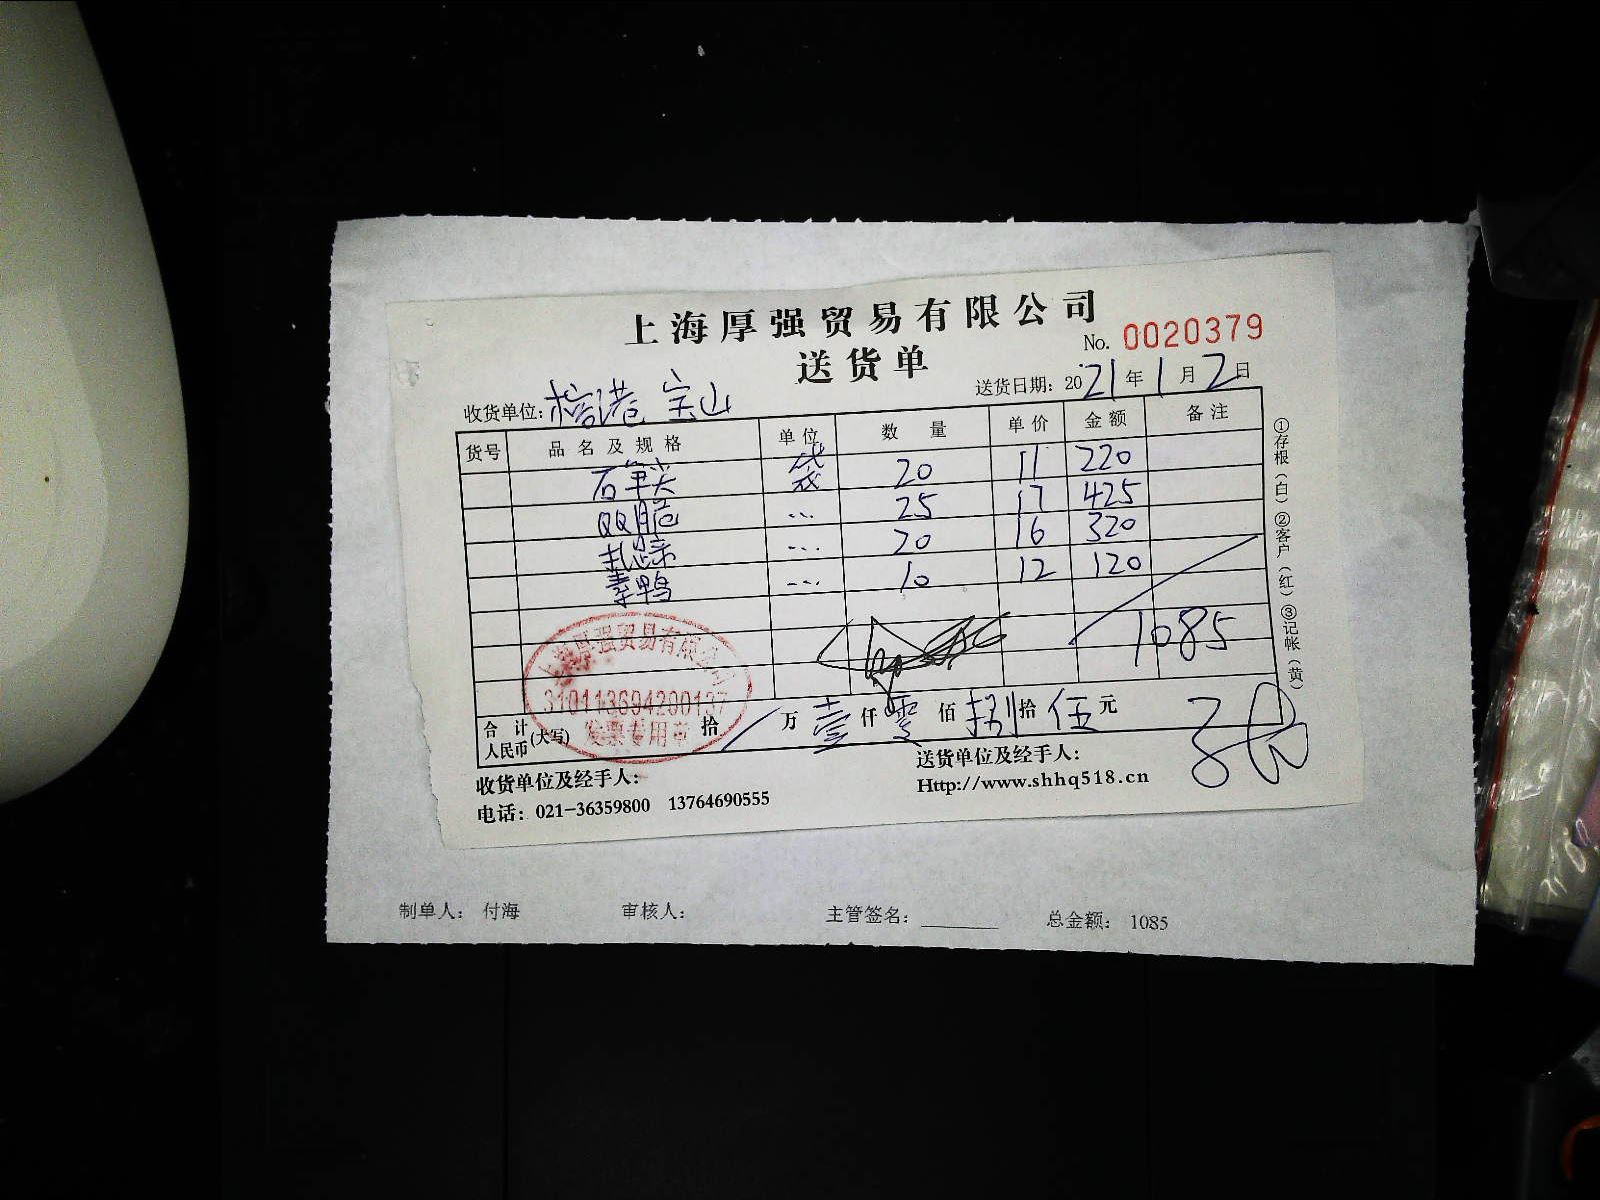 上海厚强贸易有限公司
No. 0020379
送货单
送货日期：2021年1月2日
收货单位：港 宝山
货号 品名及规格 单位 数量 单价 金额 备注
石笋尖 袋 20 11 220
QQ脆 … 25 17 425
… 20 16 320
素鸭 … 10 12 120
1085
合计人民币(大写) 拾 万 壹 仟 零 佰 捌 拾 伍 元
上海厚强贸易有限公司
310113694200137
发票专用章
收货单位及经手人：
送货单位及经手人：
电话：021-36359800 13764690555
Http://www.shhq518.cn
①存根（白）②客户（红）③记帐（黄）
制单人： 付海 审核人： 主管签名： 总金额： 1085